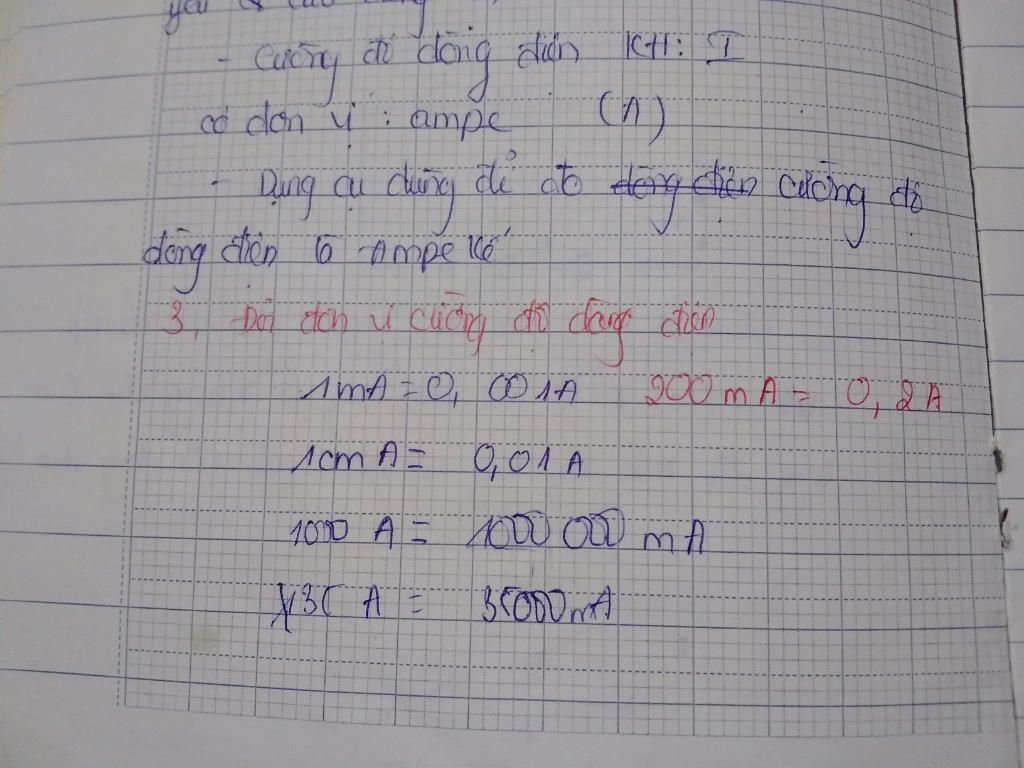 yếu
- Cường độ dòng điện KH: I
có đơn vị : ampe (A)
- Dụng cụ dùng để đo dòng điện cường độ
dòng điện là Ampe kế
3, Đổi đơn vị cường độ dòng điện
1mA = 0,001A 200mA = 0,2A
1cmA = 0,01A
1000 A = 1000 000 mA
35 A = 35000mA